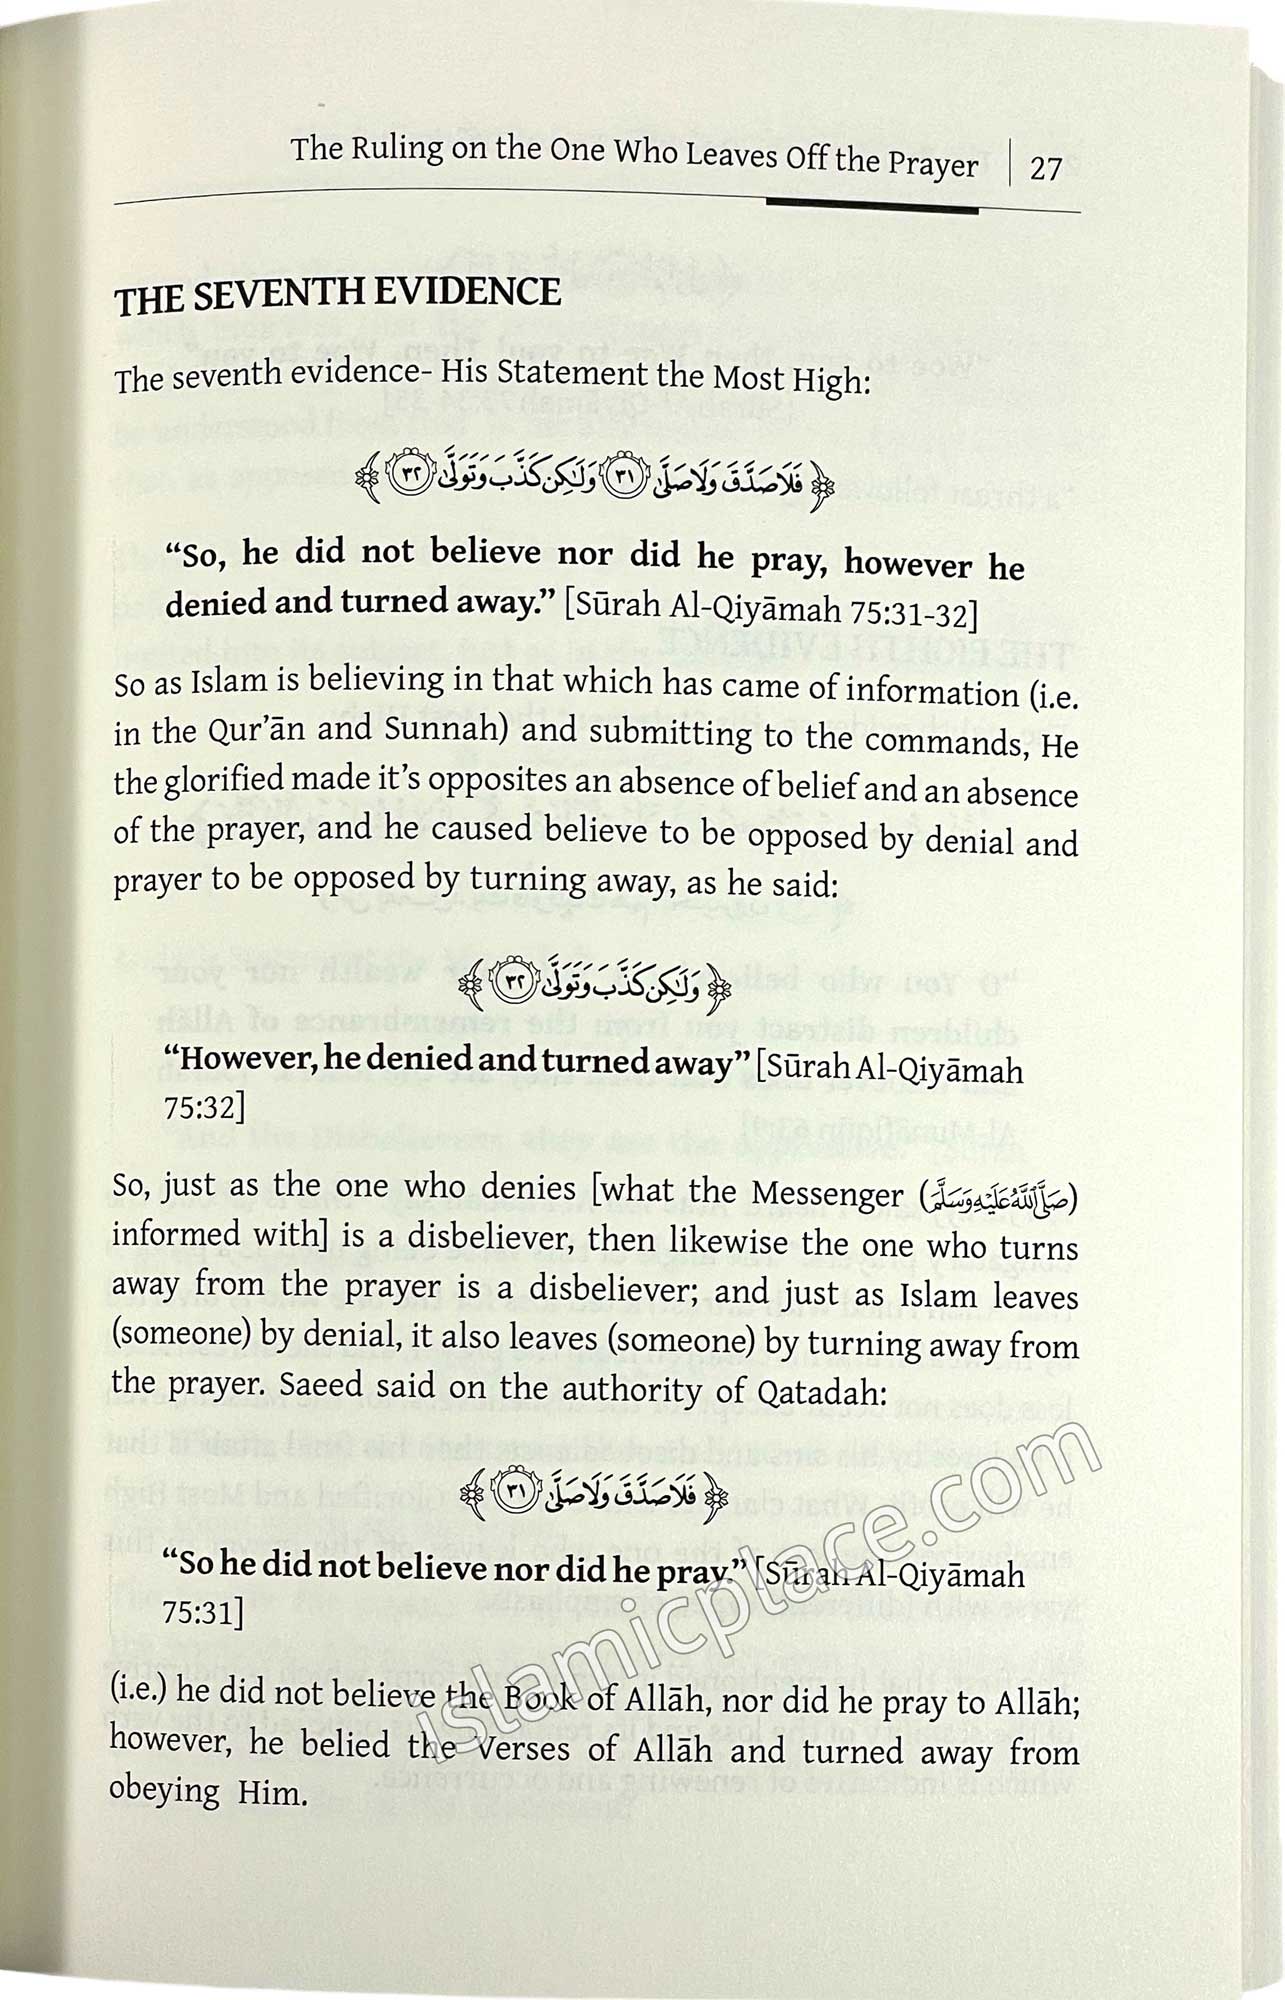 The Ruling on the One Who Leaves Off the Prayer | 27
THE SEVENTH EVIDENCE
The seventh evidence- His Statement the Most High:
﴿ فَلَا صَدَّقَ وَلَا صَلَّىٰ ٣١ وَلَٰكِن كَذَّبَ وَتَوَلَّىٰ ٣٢ ﴾
“So, he did not believe nor did he pray, however he
denied and turned away.” [Sūrah Al-Qiyāmah 75:31-32]
So as Islam is believing in that which has came of information (i.e.
in the Qur’ān and Sunnah) and submitting to the commands, He
the glorified made it’s opposites an absence of belief and an absence
of the prayer, and he caused believe to be opposed by denial and
prayer to be opposed by turning away, as he said:
﴿ وَلَٰكِن كَذَّبَ وَتَوَلَّىٰ ٣٢ ﴾
“However, he denied and turned away” [Sūrah Al-Qiyāmah
75:32]
So, just as the one who denies [what the Messenger (صَلَّى اللَّهُ عَلَيْهِ وَسَلَّمَ)
informed with] is a disbeliever, then likewise the one who turns
away from the prayer is a disbeliever; and just as Islam leaves
(someone) by denial, it also leaves (someone) by turning away from
the prayer. Saeed said on the authority of Qatadah:
﴿ فَلَا صَدَّقَ وَلَا صَلَّىٰ ٣١ ﴾
“So he did not believe nor did he pray.” [Sūrah Al-Qiyāmah
75:31]
(i.e.) he did not believe the Book of Allāh, nor did he pray to Allāh;
however, he belied the Verses of Allāh and turned away from
obeying Him.
islamicplace.com